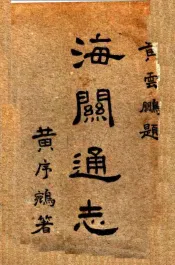 黄雲鵬題
海關通志
黄序鵷著